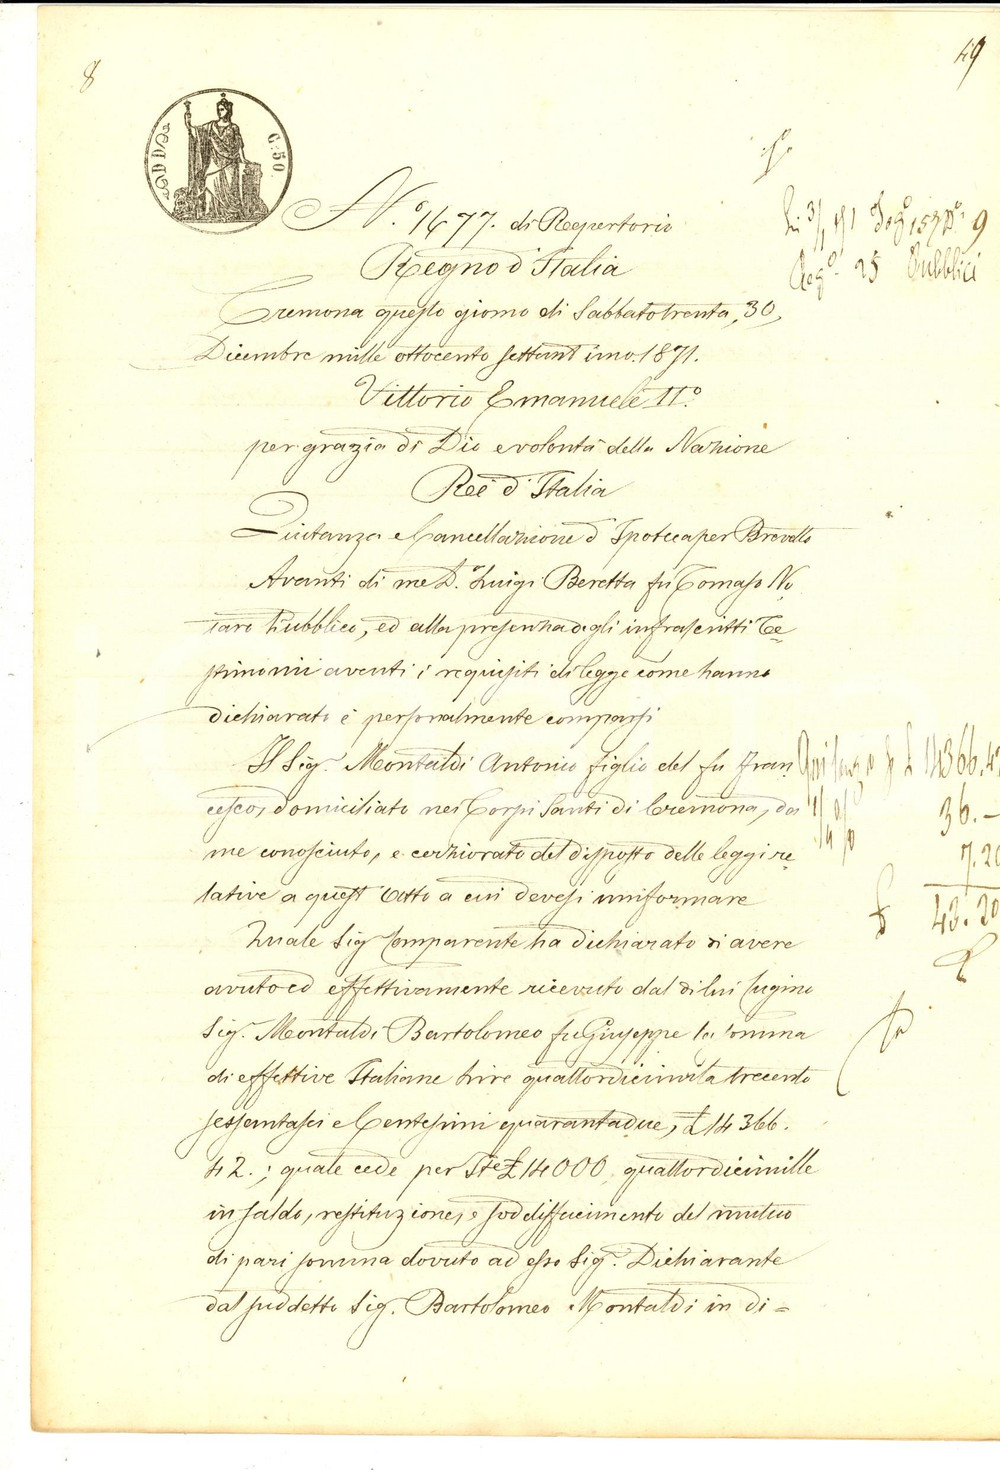 8
49
C. 50
N.° 1477. di Repertorio
Regno d'Italia
Cremona questo giorno di Sabbato trenta, 30,
Dicembre mille ottocento settant'uno. 1871.
Vittorio Emanuele II.°
per grazia di Dio e volontà della Nazione
Reé d'Italia
Quitanza e Cancellazione d'Ipoteca per Brevetto
Avanti di me D. Luigi Beretta fu Tomaso No
taro Pubblico, ed alla presenza degli infrascritti Te=
stimonii aventi i requisiti di legge come hanno
dichiarato è personalmente comparsi
Il Sig.r Montaldi Antonio figlio del fu Fran
cesco, domiciliato nei Corpi Santi di Cremona, da
me conosciuto, e cerziorato del disposto delle leggi re=
lative a quest'Atto a cui devesi uniformare
Quale Sig. Comparente ha dichiarato di avere
avuto ed effettivamente ricevuto dal di lui Cugino
Sig.r Montaldi Bartolomeo fu Giuseppe la somma
di effettive Italiane Lire quattordicimila trecento
sessantasei e Centesimi quarantadue, £ 14366.
42.; quale cede per Ite £ 14000 quattordicimille
in saldo, restituzione, e soddisfacimento del mutuo
di pari somma dovuto ad esso Sig.r Dichiarante
dal suddetto Sig. Bartolomeo Montaldi in di=
9
Reg.° 25 Pubblici
Quitanza p £ 14366.42
36.—
7.20
£ 43.20